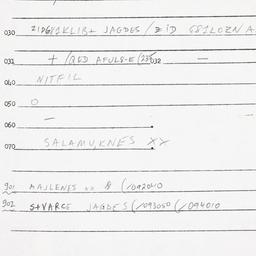 030 ZIDG81KLIB+ JAGDES / ZID G81LOZN A
031 + / QED AFULS-E (235 032 —
040 NITFIL
050 O
060 —
070 SALAMUKNES XX
901 AAJLENES xx 8 (/092010
902 S+VARCE JAGDES (/093050 (/094010